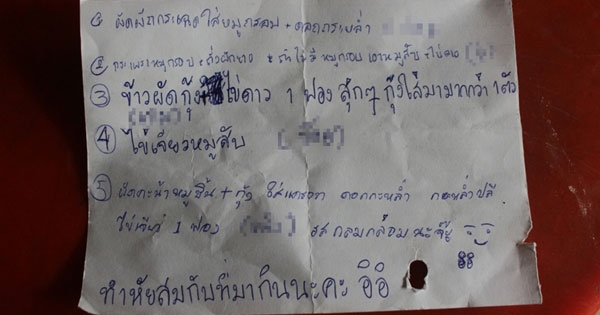 ① ผัดผักกระเฉดใส่หมูกรอบ + ดอกกระหล่ำ
② กระเพราหมูกรอบ + ถั่วฝักยาว * ถ้าไม่มีหมูกรอบ เอาหมูสับ + ไข่ดาว
③ ข้าวผัดกุ้ง ไข่ดาว 1 ฟอง สุกๆ กุ้งใส่มามากกว่า 1 ตัว
④ ไข่เจียวหมูสับ
⑤ ผัดคะน้าหมูชิ้น + กุ้ง ใส่แครอท ดอกกะหล่ำ กะหล่ำปลี
ไข่เจียว 1 ฟอง รสกลมกล่อมนะจ๊ะ
อิอิ
ทำหัยสมกับที่มากินนะคะ อิอิ